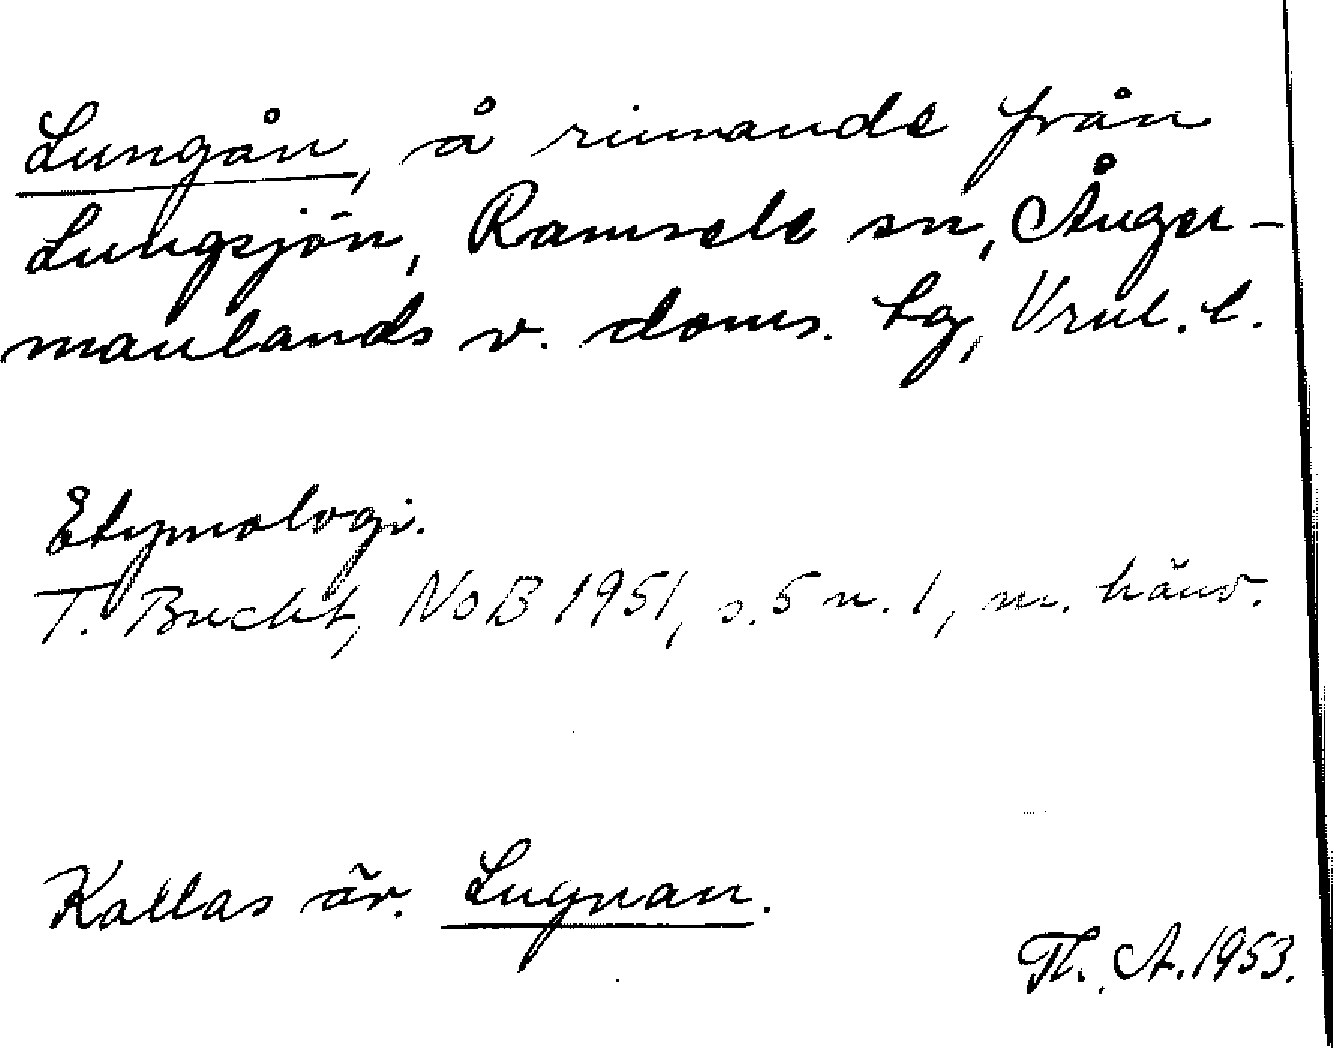 Lungån, å rinnande från
Lungsjön, Ramsele sn, Ånger-
manlands v. doms. lg, Vrnl. l.
Etymologi.
T. Bucht, NoB 1951, s. 5 n. 1, m. hänv.
Kallas äv. Lugnan.
Th. A. 1953.